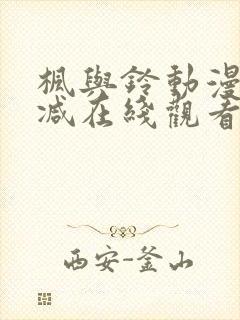 楓與鈴動漫
减在綫觀看
西安-釜山